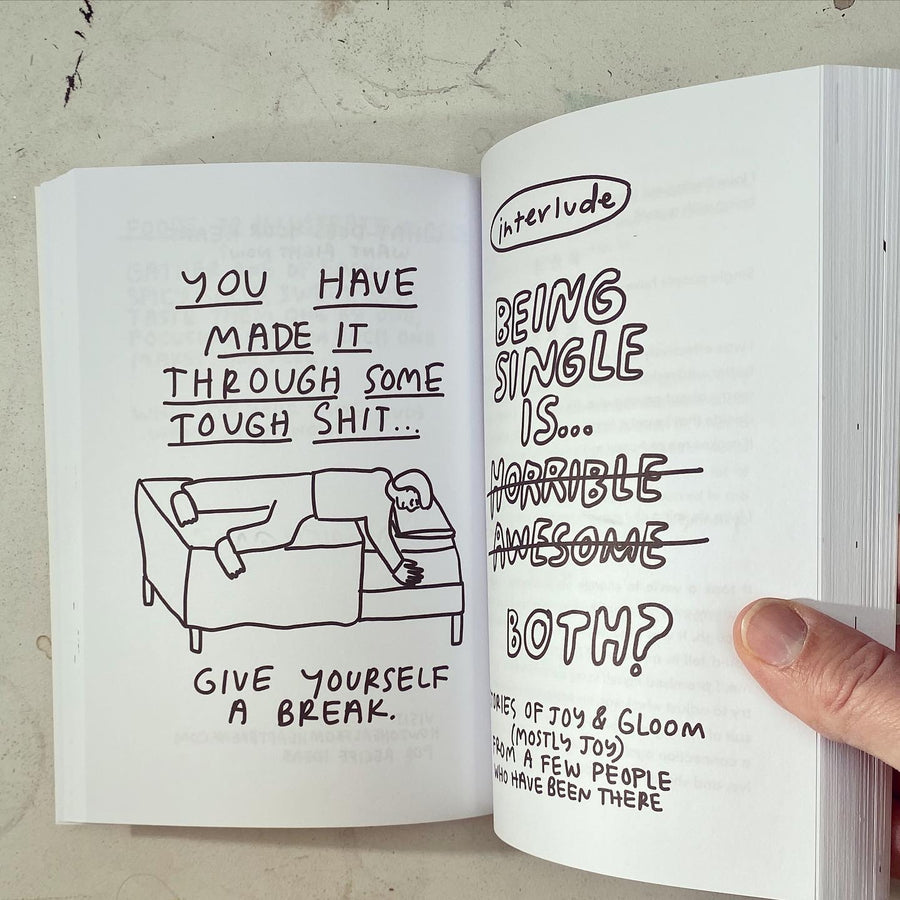 YOU HAVE
MADE IT
THROUGH SOME
TOUGH SHIT...
GIVE YOURSELF
A BREAK.
interlude
BEING
SINGLE
IS...
HORRIBLE
AWESOME
BOTH?
OF JOY & GLOOM
(MOSTLY JOY)
FROM A FEW PEOPLE
WHO HAVE BEEN THERE